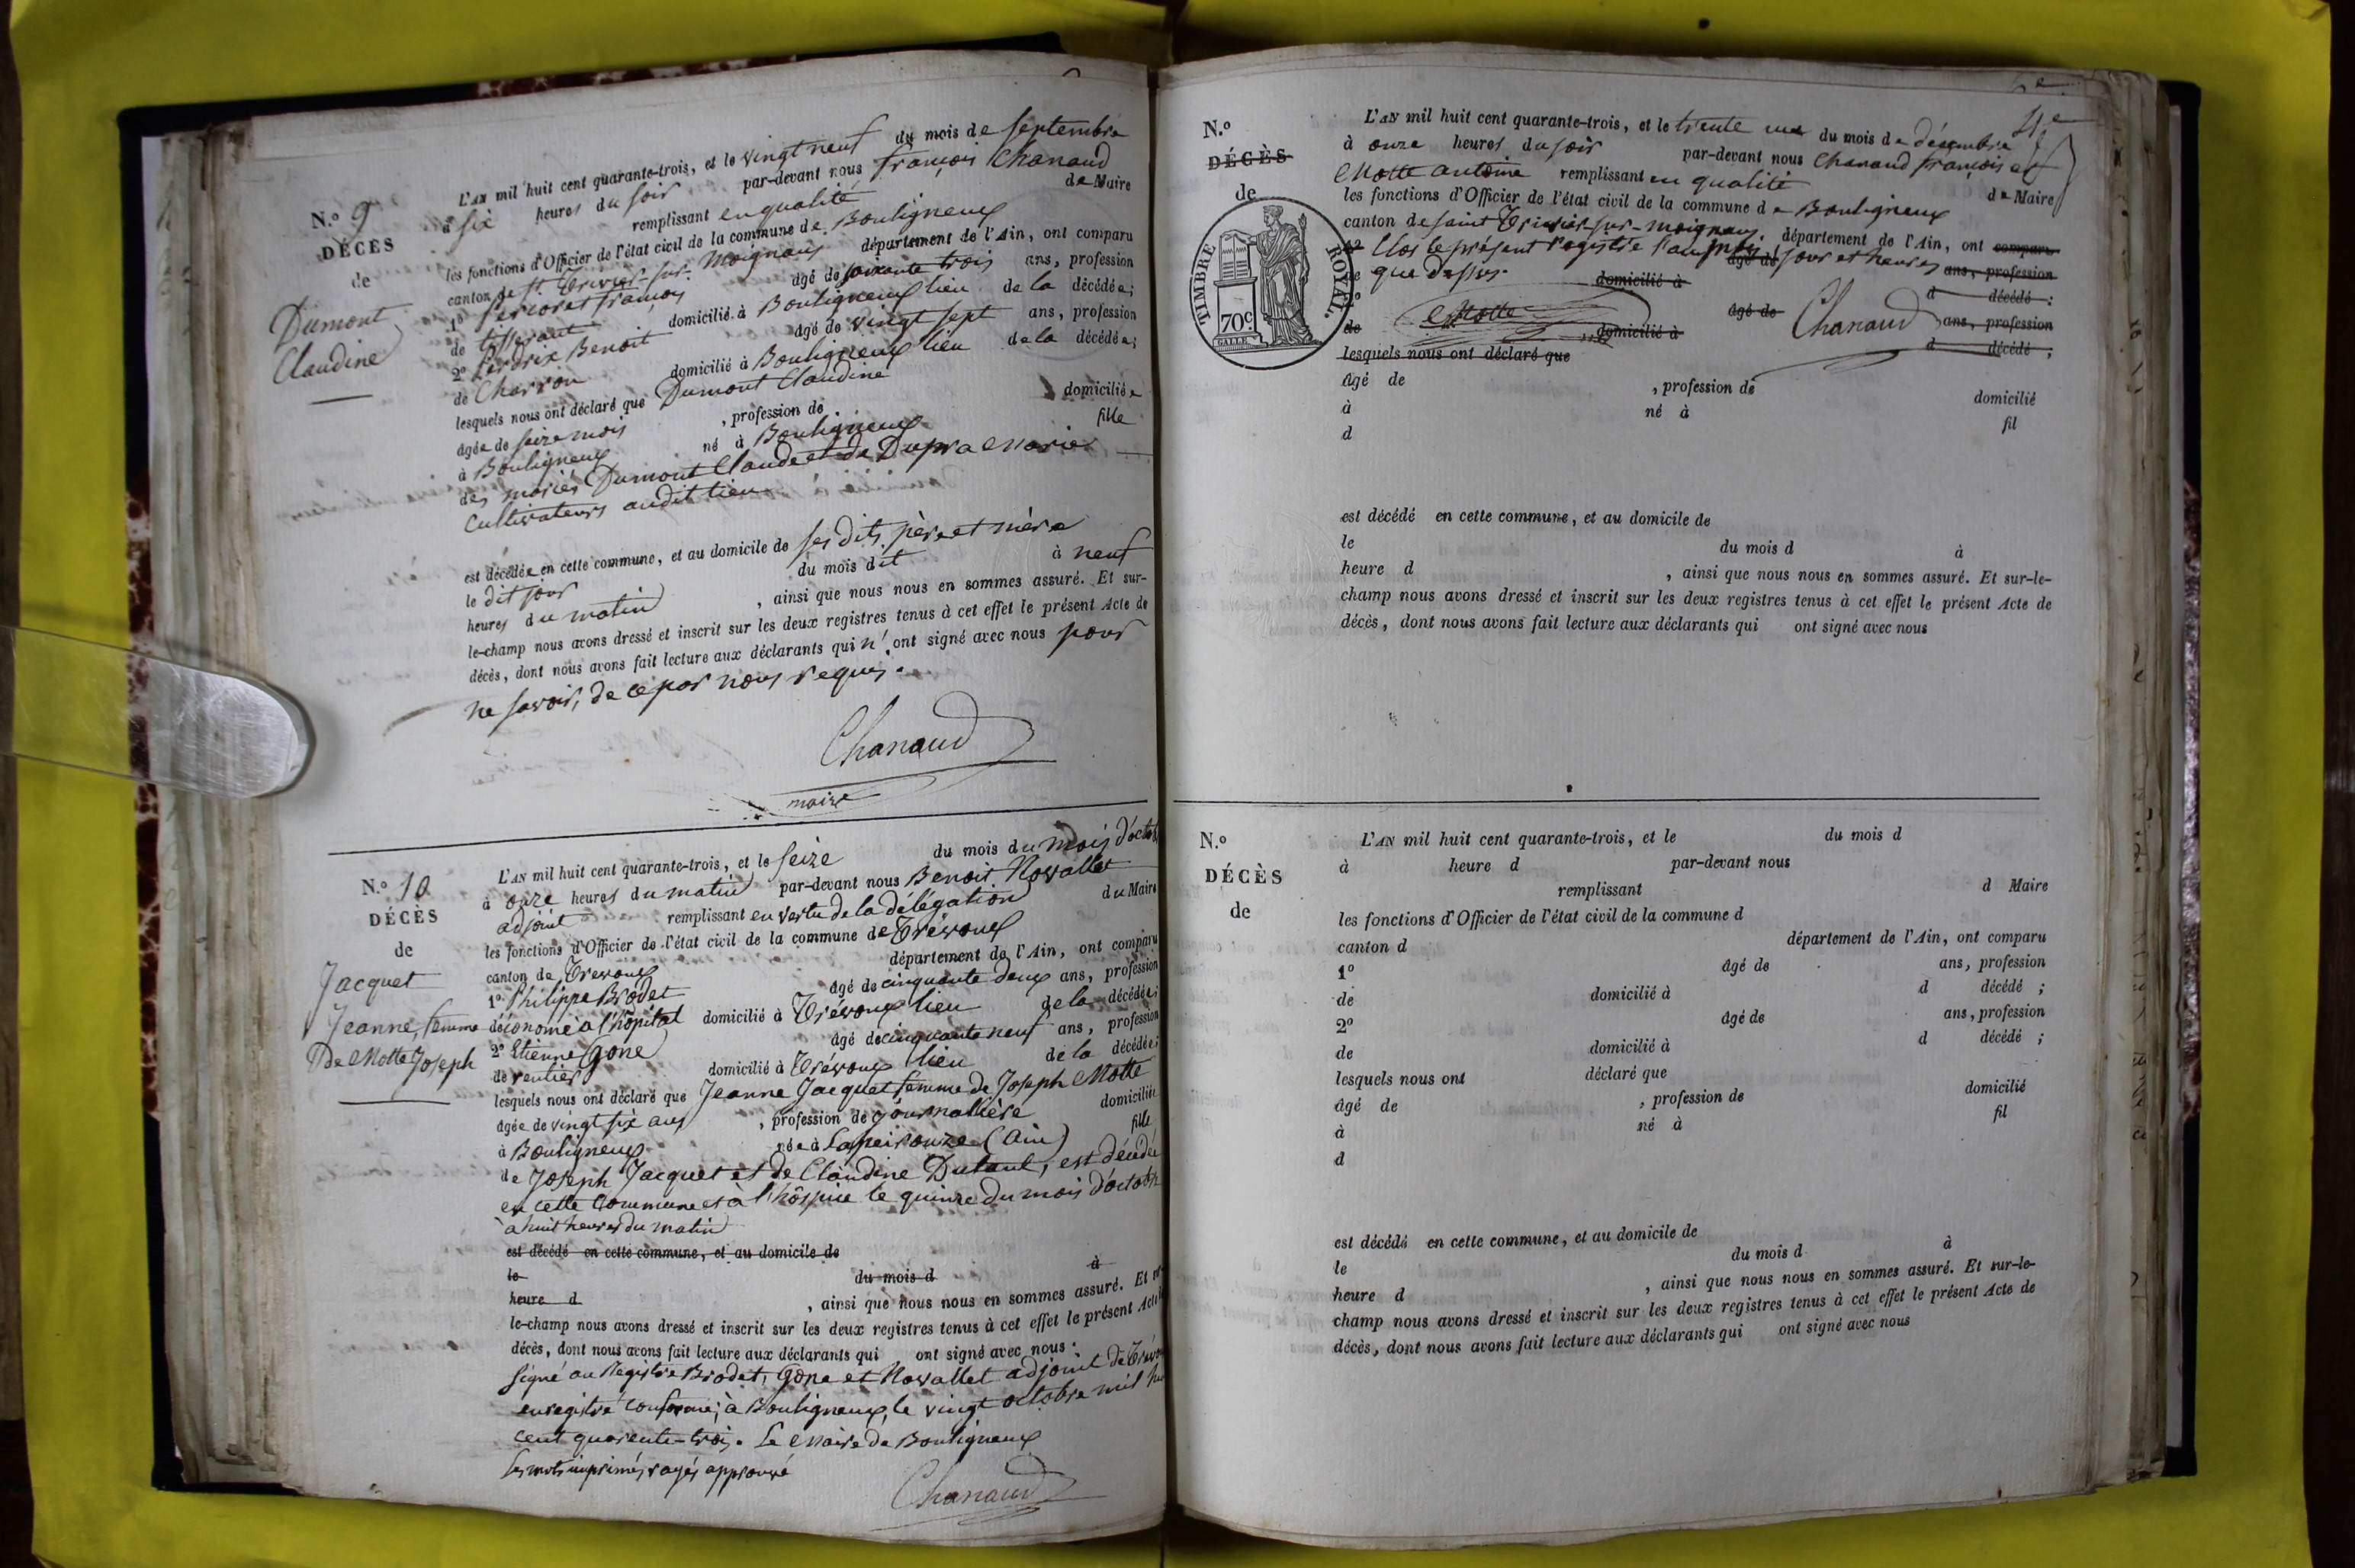 N.° 9
DÉCÈS
de
Dumont
Claudine
L'AN mil huit cent quarante-trois, et le vingt neuf du mois de septembre
à six heures du soir par-devant nous françois Chanaud
remplissant en qualité de Maire
les fonctions d'Officier de l'état civil de la commune de Bouligneux
canton de st Trivier-sur-Moignans département de l'Ain, ont comparu
1° françois âgé de soixante trois ans, profession
de tisserant domicilié à Bouligneux lieu de la décédée;
2° Perdrix Benoit âgé de vingt sept ans, profession
de Charron domicilié à Bouligneux lieu de la décédée;
lesquels nous ont déclaré que Dumont Claudine
âgée de seize mois , profession de domiciliée
à Bouligneux né à Bouligneux fille
des mariés Dumont Claude et de Dupra Marie
Cultivateurs audit lieu
est décédée en cette commune, et au domicile de ses dits père et mère
le dit jour du mois dit à neuf
heures du matin , ainsi que nous nous en sommes assuré. Et sur-
le-champ nous avons dressé et inscrit sur les deux registres tenus à cet effet le présent Acte de
décès, dont nous avons fait lecture aux déclarants qui n'ont signé avec nous pour
ne savoir, de ce par nous requis.
Chanaud
maire
N.° 10
DÉCÈS
de
Jacquet
Jeanne, femme
De Motte Joseph
L'AN mil huit cent quarante-trois, et le seize du mois du mois d'octob
à onze heures du matin par-devant nous Benoit Novallet
adjoint remplissant en vertu de la délégation du Maire
les fonctions d'Officier de l'état civil de la commune de Trévoux
canton de Trevoux département de l'Ain, ont comparu
1° Philippe Brodet âgé de cinquante deux ans, profession
d'économe à l'hôpital domicilié à Trévoux lieu de la décédée;
2° Etienne Gone âgé de cinquante neuf ans, profession
de rentier domicilié à Trévoux lieu de la décédée;
lesquels nous ont déclaré que Jeanne Jacquet, femme de Joseph Motte
âgée de vingt six ans , profession de journalière domiciliée
à Bouligneux née à Lapeirouze (Ain) fille
de Joseph Jacquet et de Claudine Dutant, est décédée
en cette Commune et à l'hôspice le quinze du mois d'octobre
à huit heures du matin
est décédé en cette commune, et au domicile de
le du mois d à
heure d , ainsi que nous nous en sommes assuré. Et sur-
le-champ nous avons dressé et inscrit sur les deux registres tenus à cet effet le présent Acte
décès, dont nous avons fait lecture aux déclarants qui ont signé avec nous:
signé au Registre Brodet, Gone et Novallet adjoint de Trévou
enregistré conforme; à Bouligneux, le vingt octobre mil hu
cent quarente-trois. Le Maire de Bouligneux
les mots imprimés rayés approuvé
Chanaud
N.°
DÉCÈS
de
TIMBRE ROYAL.
70c
L'AN mil huit cent quarante-trois, et le trente un du mois de décembre
à onze heures du soir par-devant nous Chanaud françois et
Motte antoine remplissant en qualité de Maire
les fonctions d'Officier de l'état civil de la commune de Bouligneux
canton de saint Trivier-sur-moignans, département de l'Ain, ont comparu
1° Clos le présent registre l'an, mois, jour et heures âgé de ans, profession
de que dessus. domicilié à d décédé ;
2° Motte âgé de Chanaud ans, profession
de domicilié à d décédé ;
lesquels nous ont déclaré que
âgé de , profession de domicilié
à né à fil
d
est décédé en cette commune, et au domicile de
le du mois d à
heure d , ainsi que nous nous en sommes assuré. Et sur-le-
champ nous avons dressé et inscrit sur les deux registres tenus à cet effet le présent Acte de
décès, dont nous avons fait lecture aux déclarants qui ont signé avec nous
N.°
DÉCÈS
de
L'AN mil huit cent quarante-trois, et le du mois d
à heure d par-devant nous
remplissant d Maire
les fonctions d'Officier de l'état civil de la commune d
canton d département de l'Ain, ont comparu
1° âgé de ans, profession
de domicilié à d décédé ;
2° âgé de ans, profession
de domicilié à d décédé ;
lesquels nous ont déclaré que
âgé de , profession de domicilié
à né à fil
d
est décédé en cette commune, et au domicile de
le du mois d à
heure d , ainsi que nous nous en sommes assuré. Et sur-le-
champ nous avons dressé et inscrit sur les deux registres tenus à cet effet le présent Acte de
décès, dont nous avons fait lecture aux déclarants qui ont signé avec nous